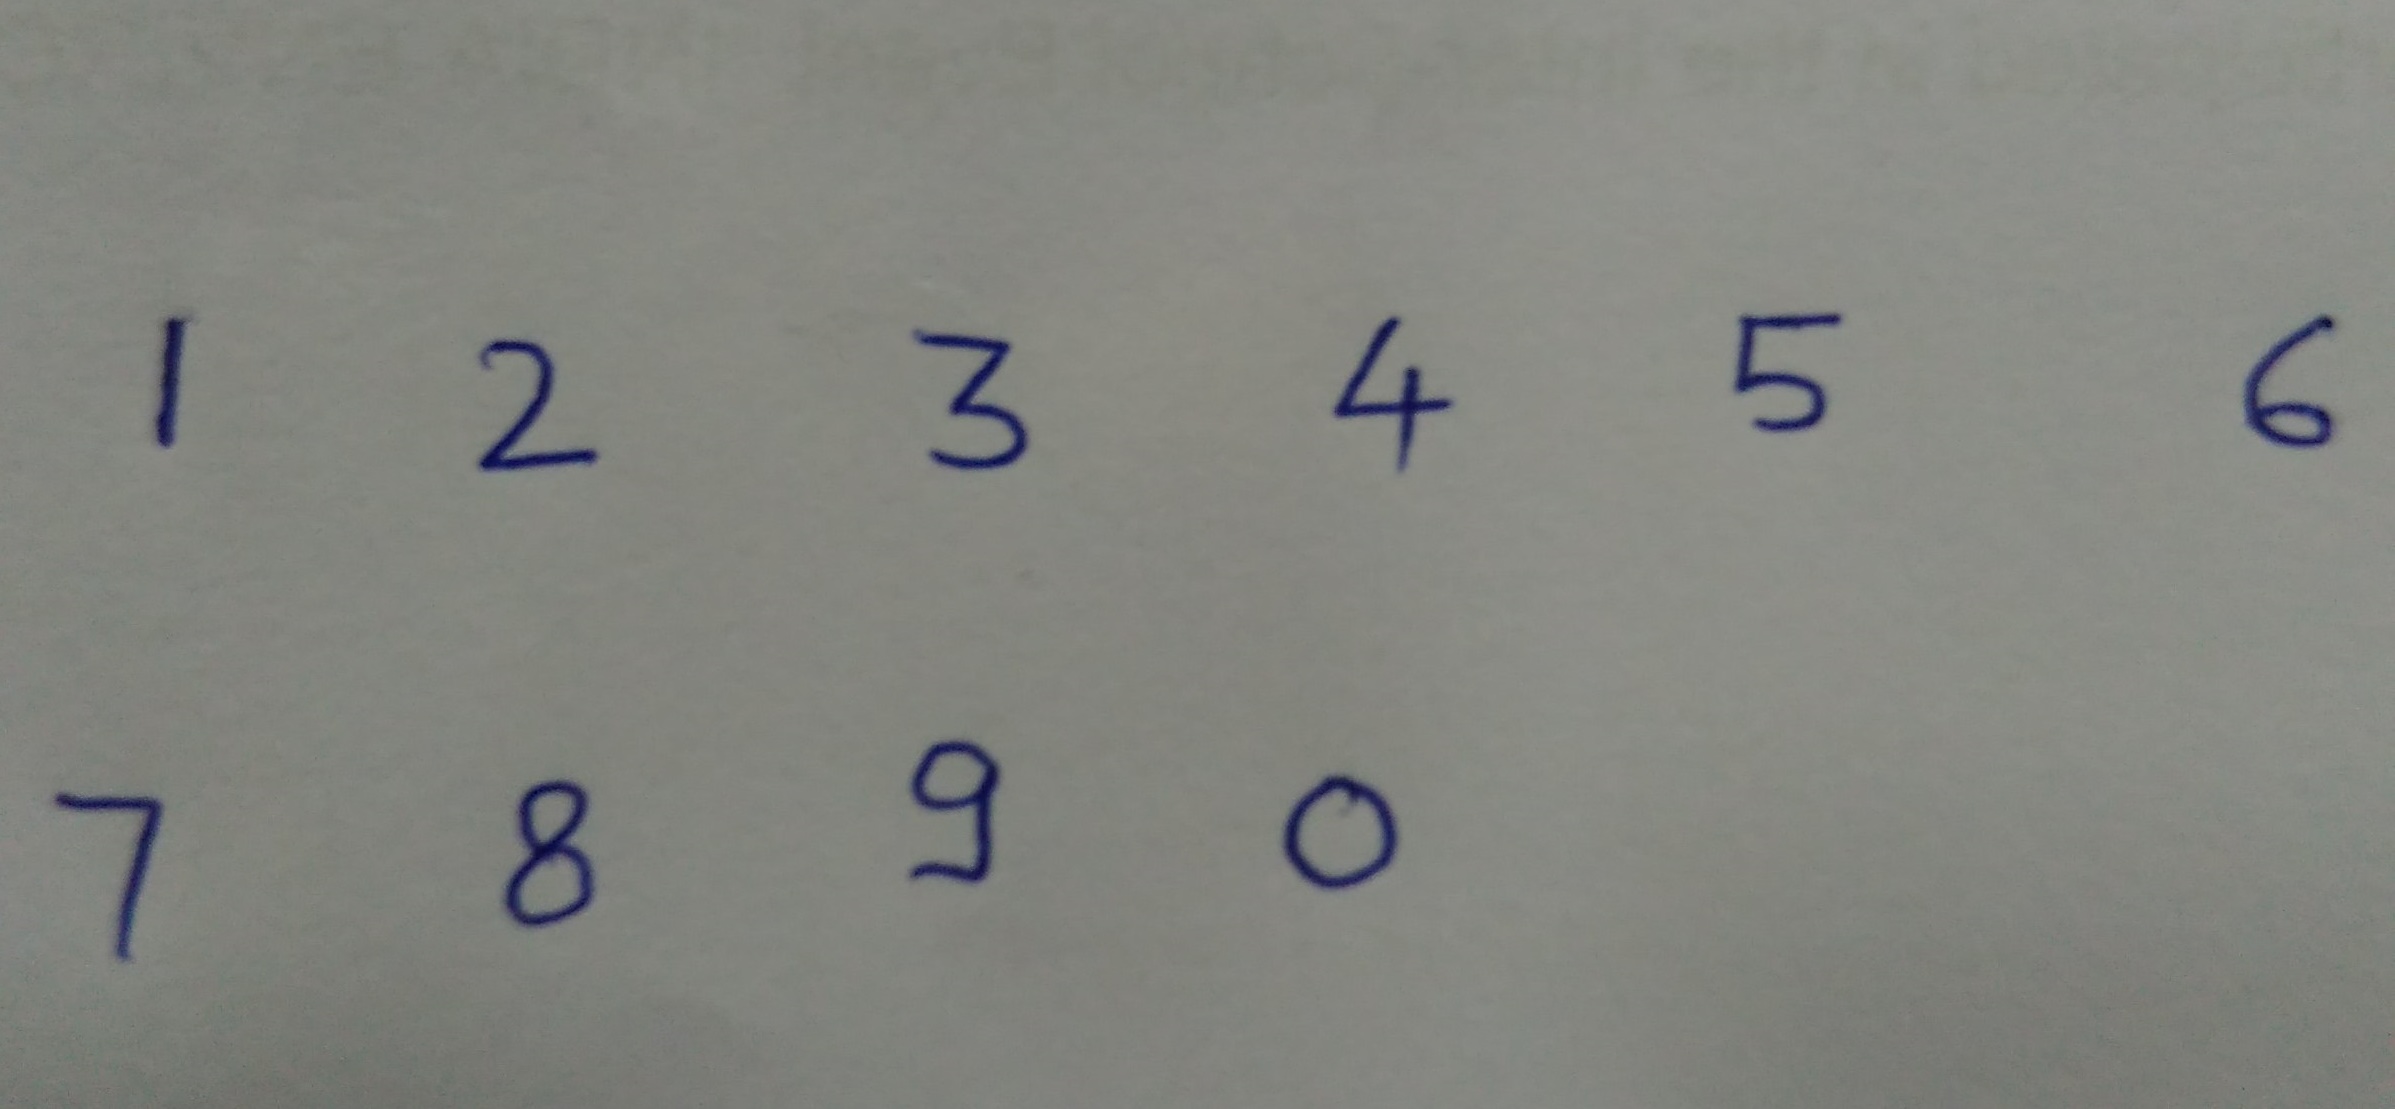 1 2 3 4 5 6
7 8 9 0